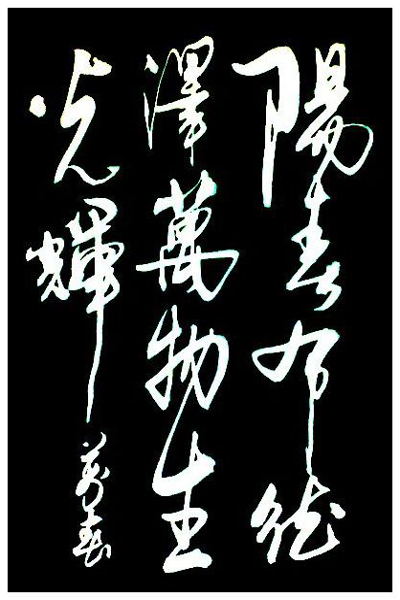 陽春布德
澤萬物生
光輝
春